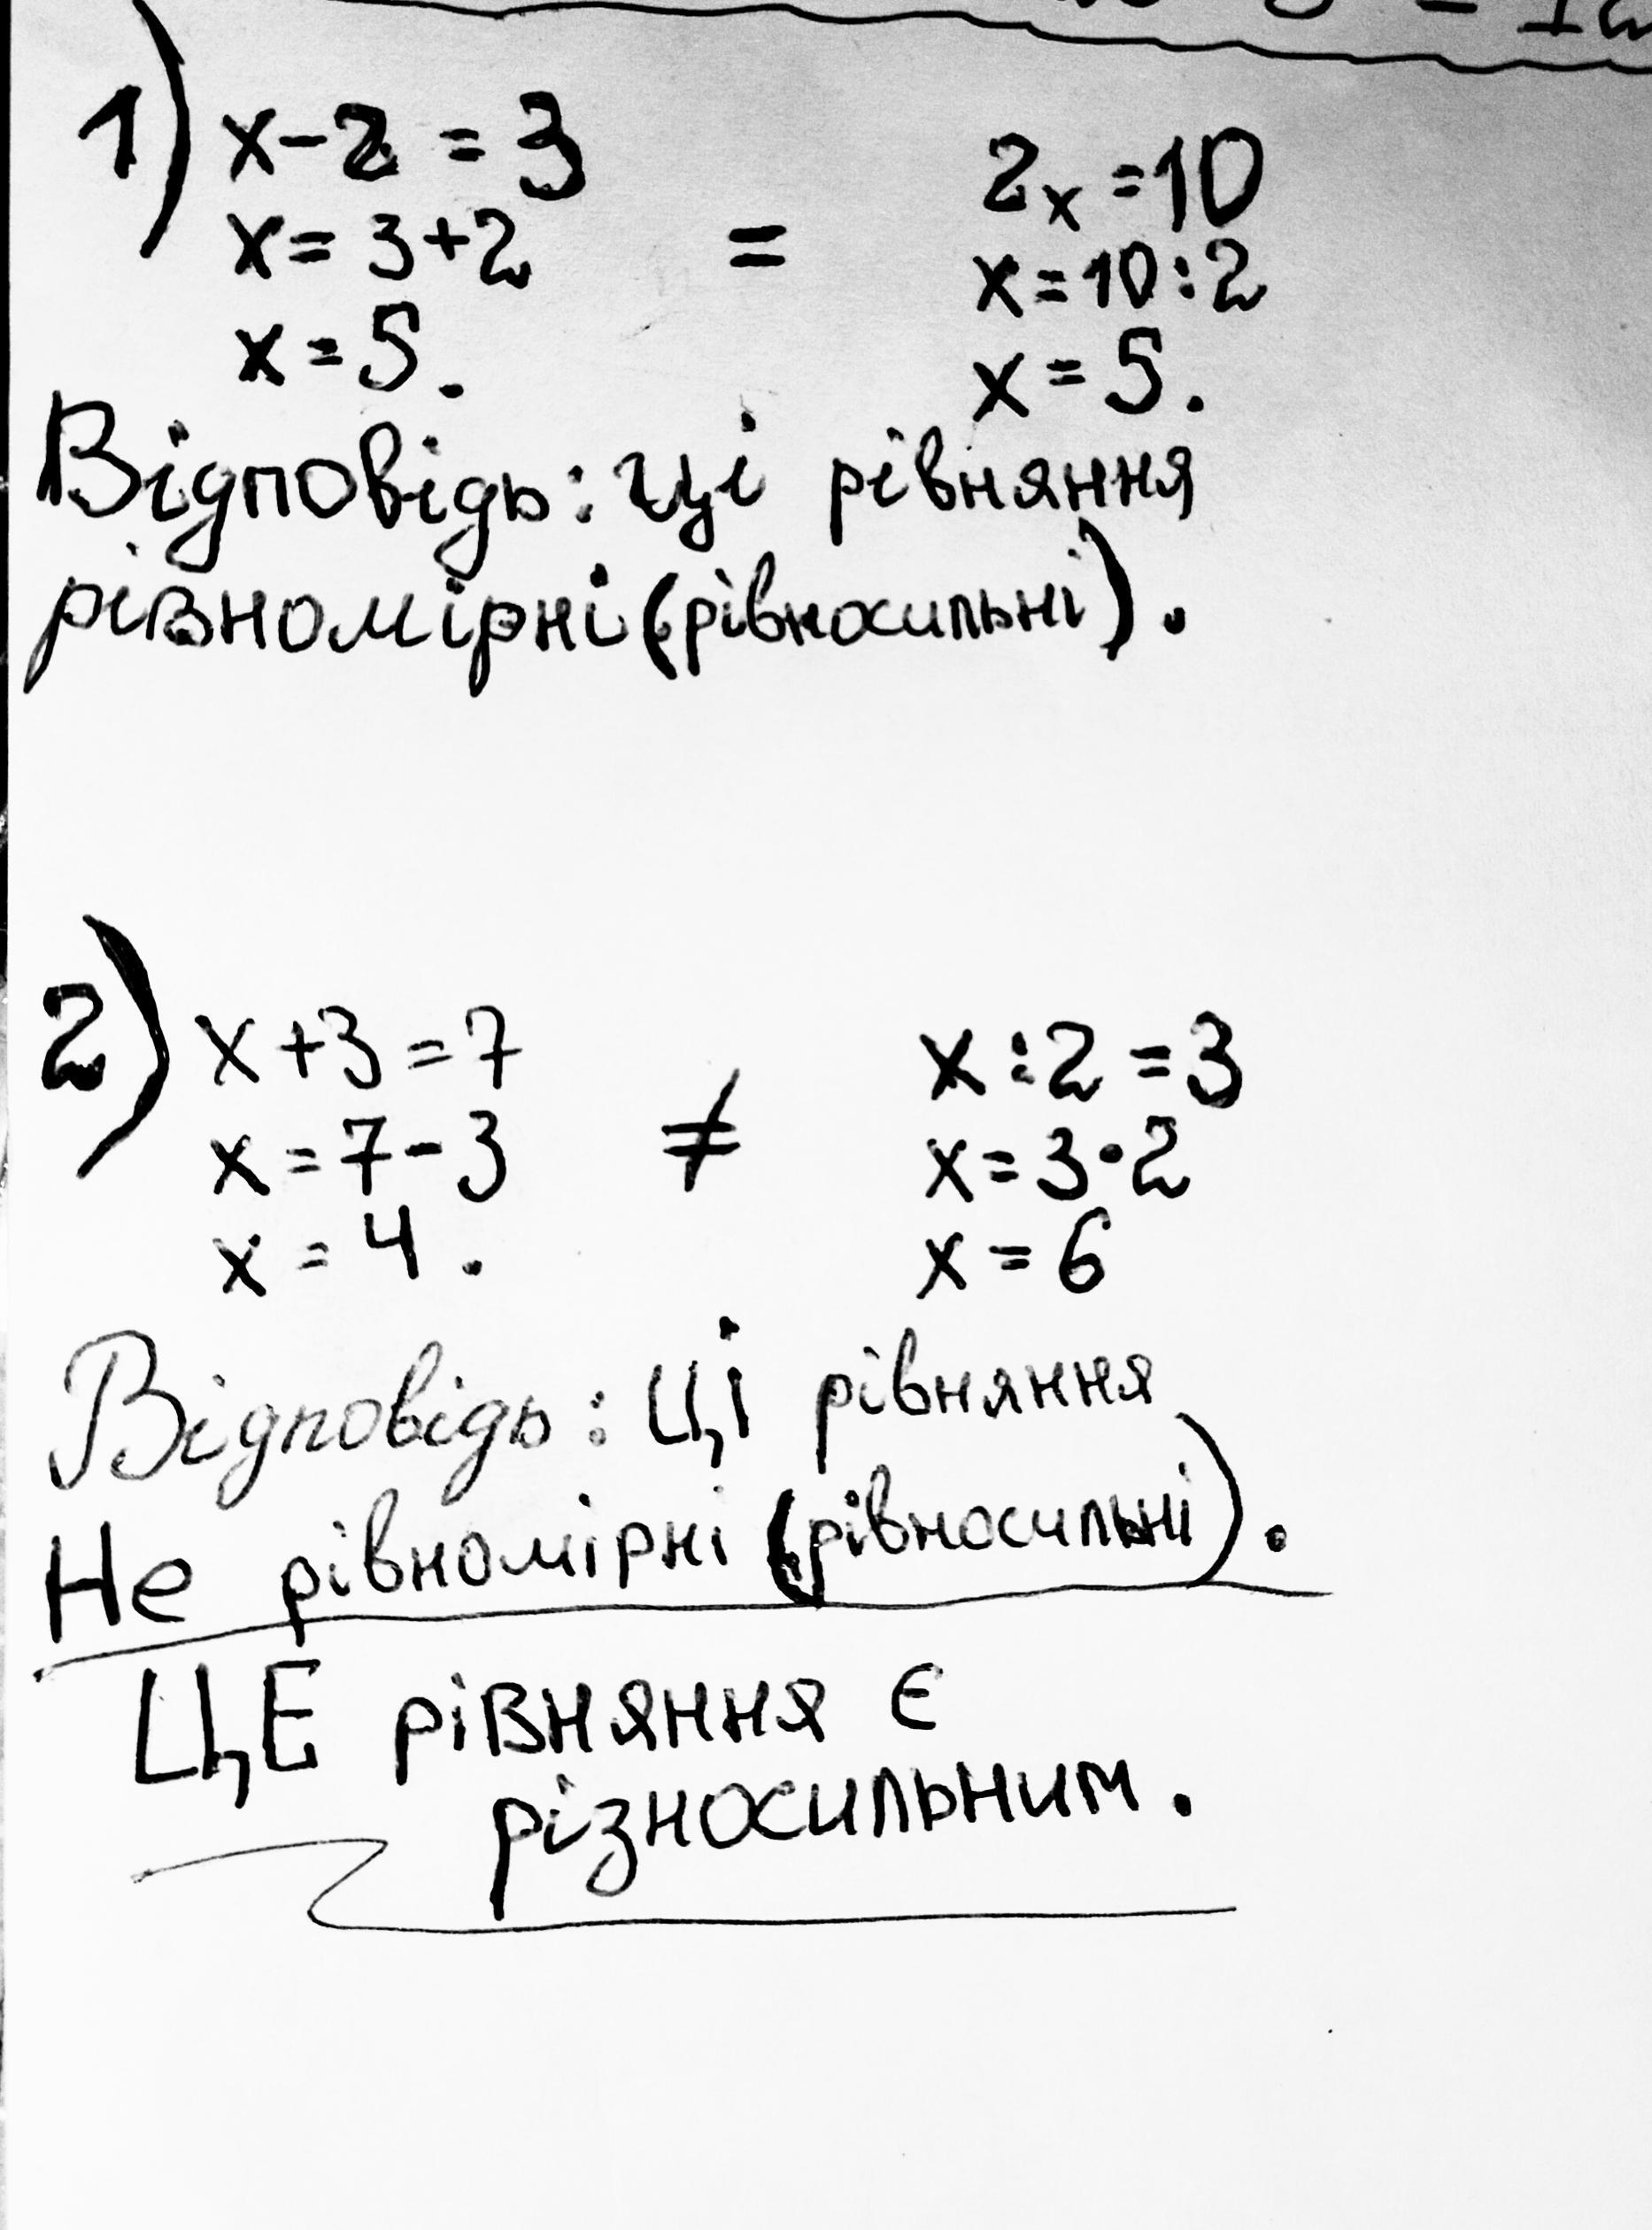 1) x-2 = 3 2x =10
x= 3+2 = x=10:2
x=5. x=5.
Відповідь: ці рівняння
рівномірні (рівносильні).
2) x+3=7 x:2=3
x=7-3 ≠ x=3·2
x=4. x=6
Відповідь: Ці рівняння
Не рівномірні (рівносильні).
ЦЕ рівняння є
різносильним.